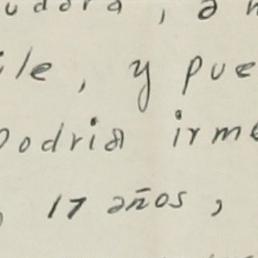 udara, a
ile, y pue
podria irme
17 años,